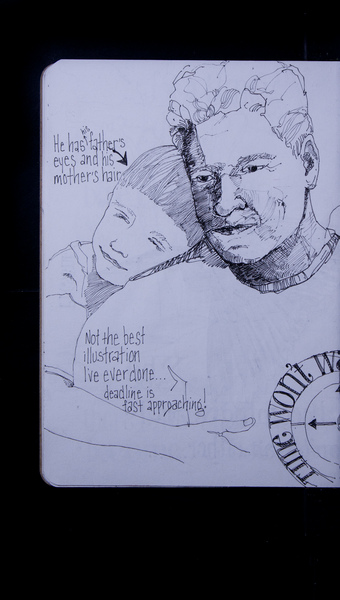 He has his father's
eyes and his
mother's hair
Not the best
illustration
I've ever done...
deadline is
fast approaching!
TIME WON'T WA